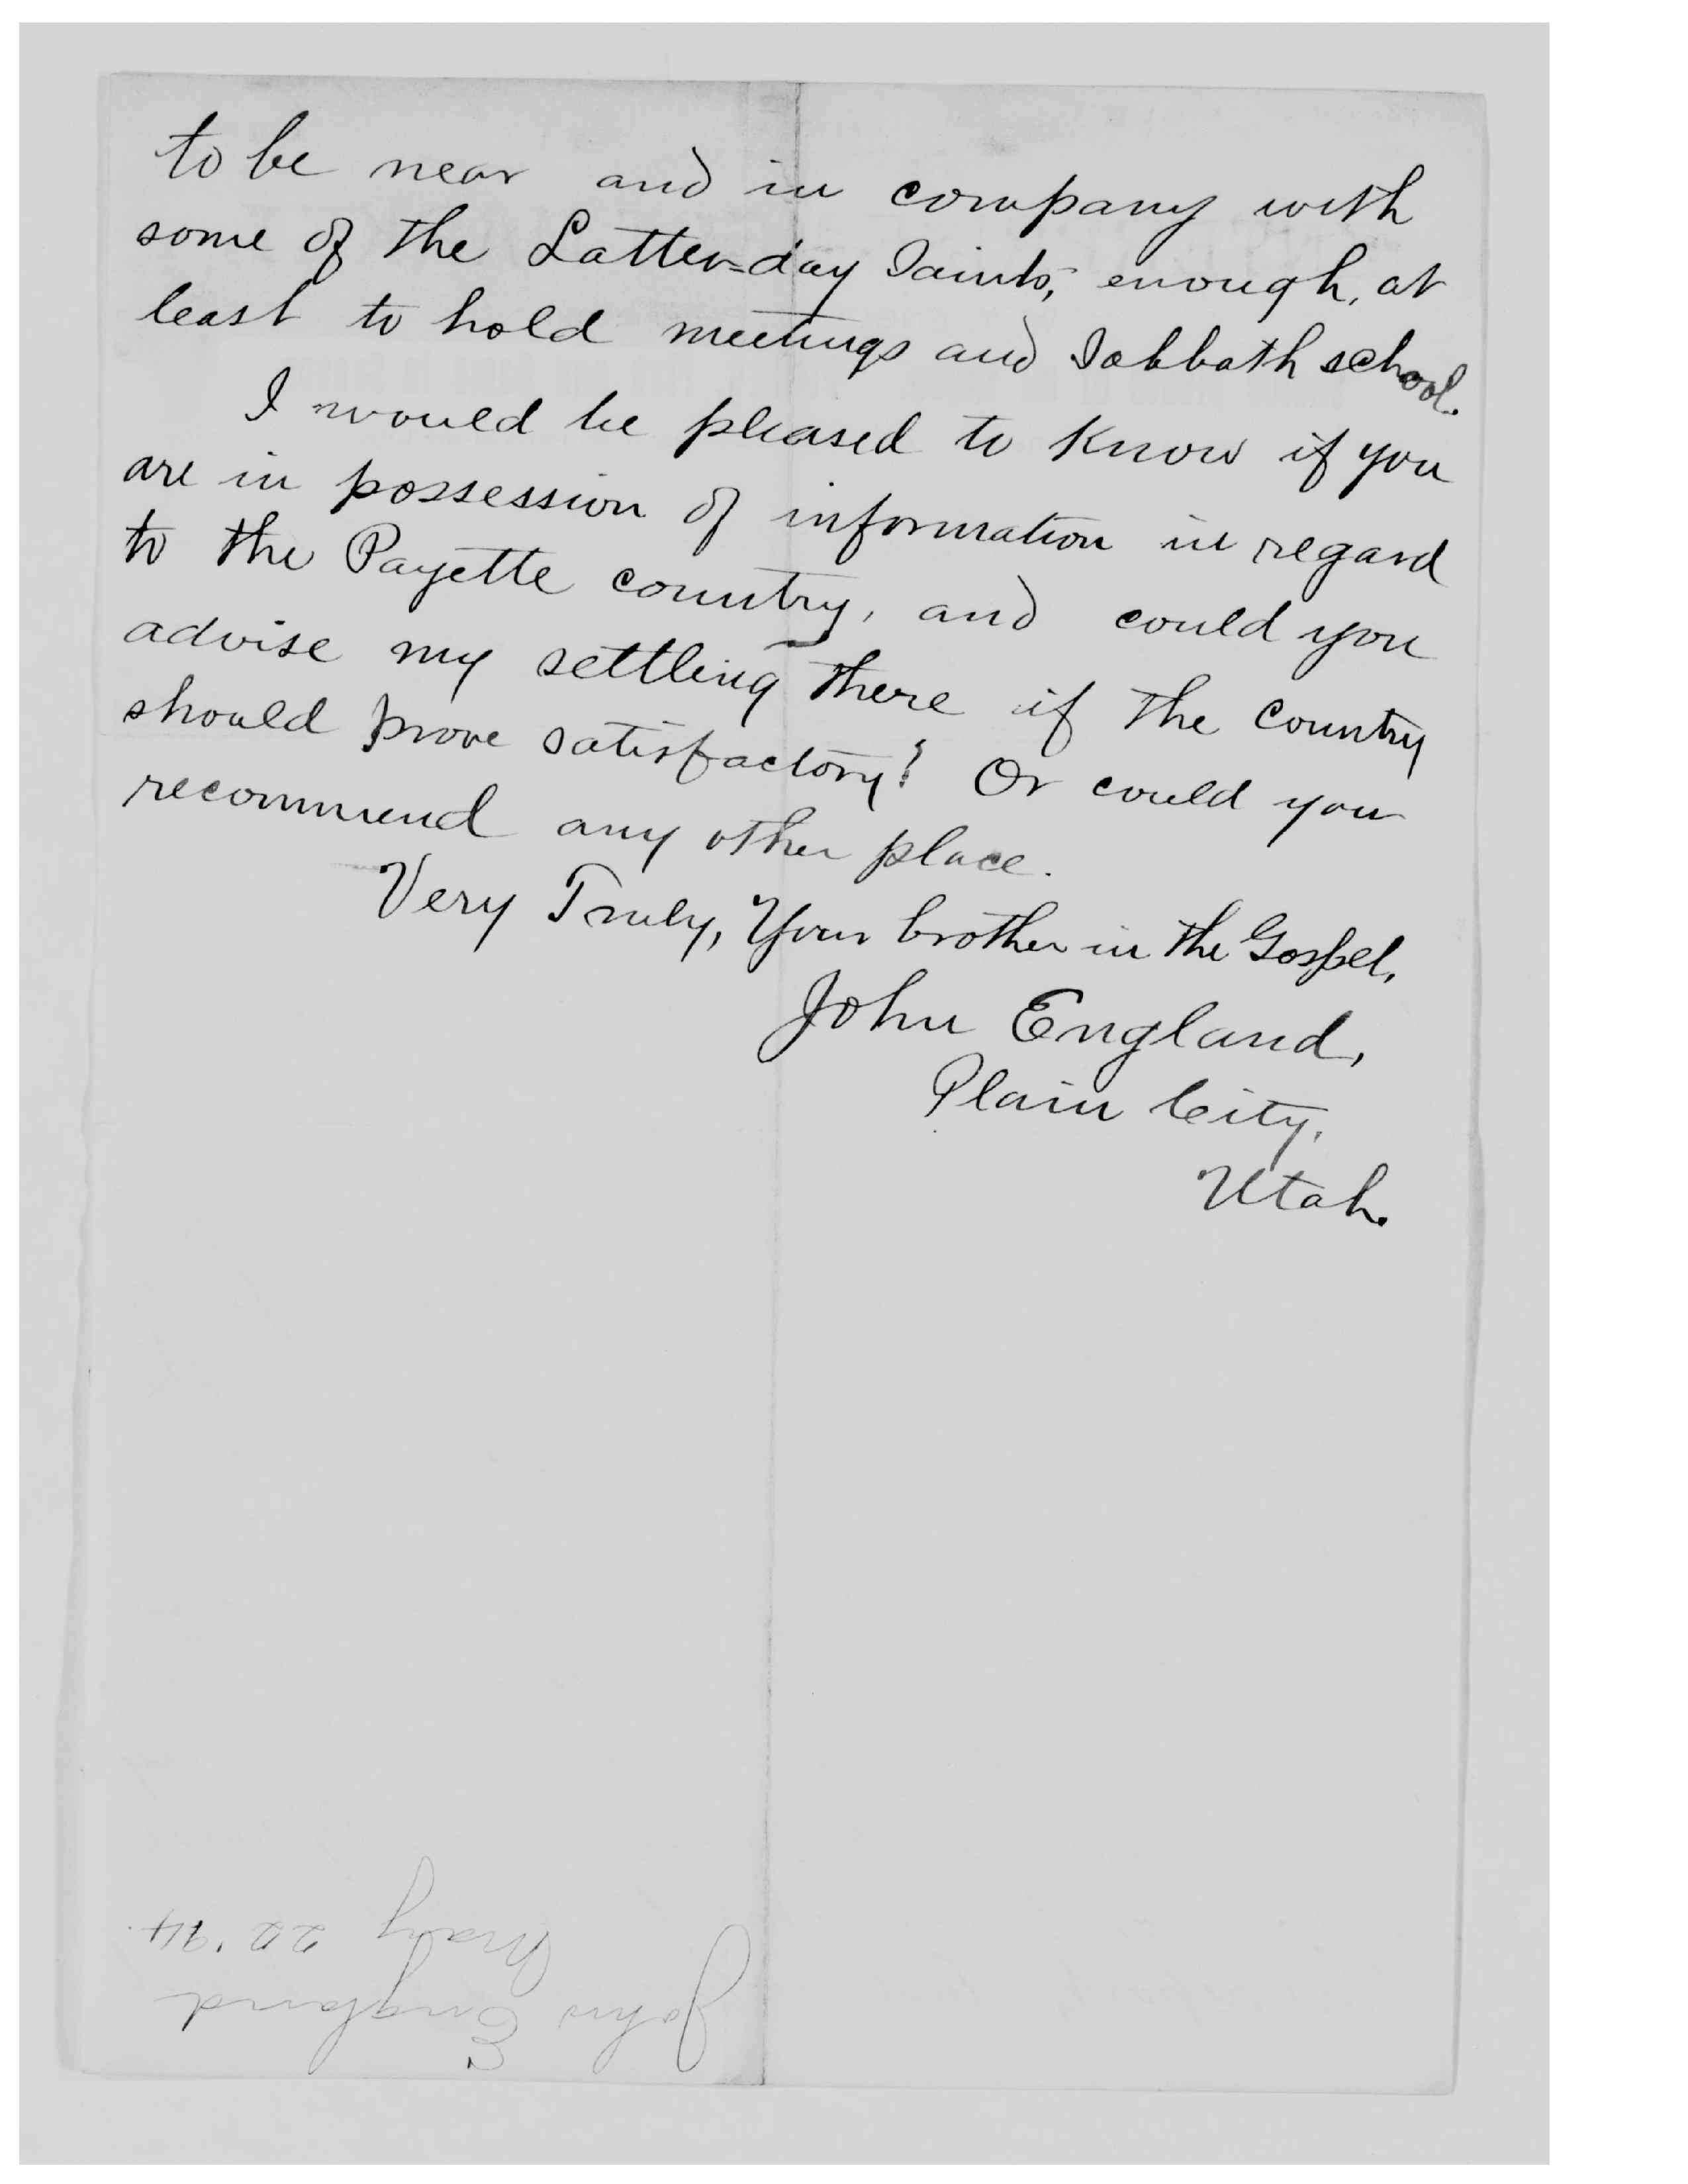 to be near and in company with
some of the Latter=day Saints, enough, at
least to hold meetings and Sabbath school.
I would be pleased to know if you
are in possession of information in regard
to the Payette country, and could you
advise my settling there if the country
should prove satisfactory? Or could you
recommend any other place.
Very Truly, Your brother in the Gospel,
John England,
Plain City,
Utah.
John England
May 22 '94.